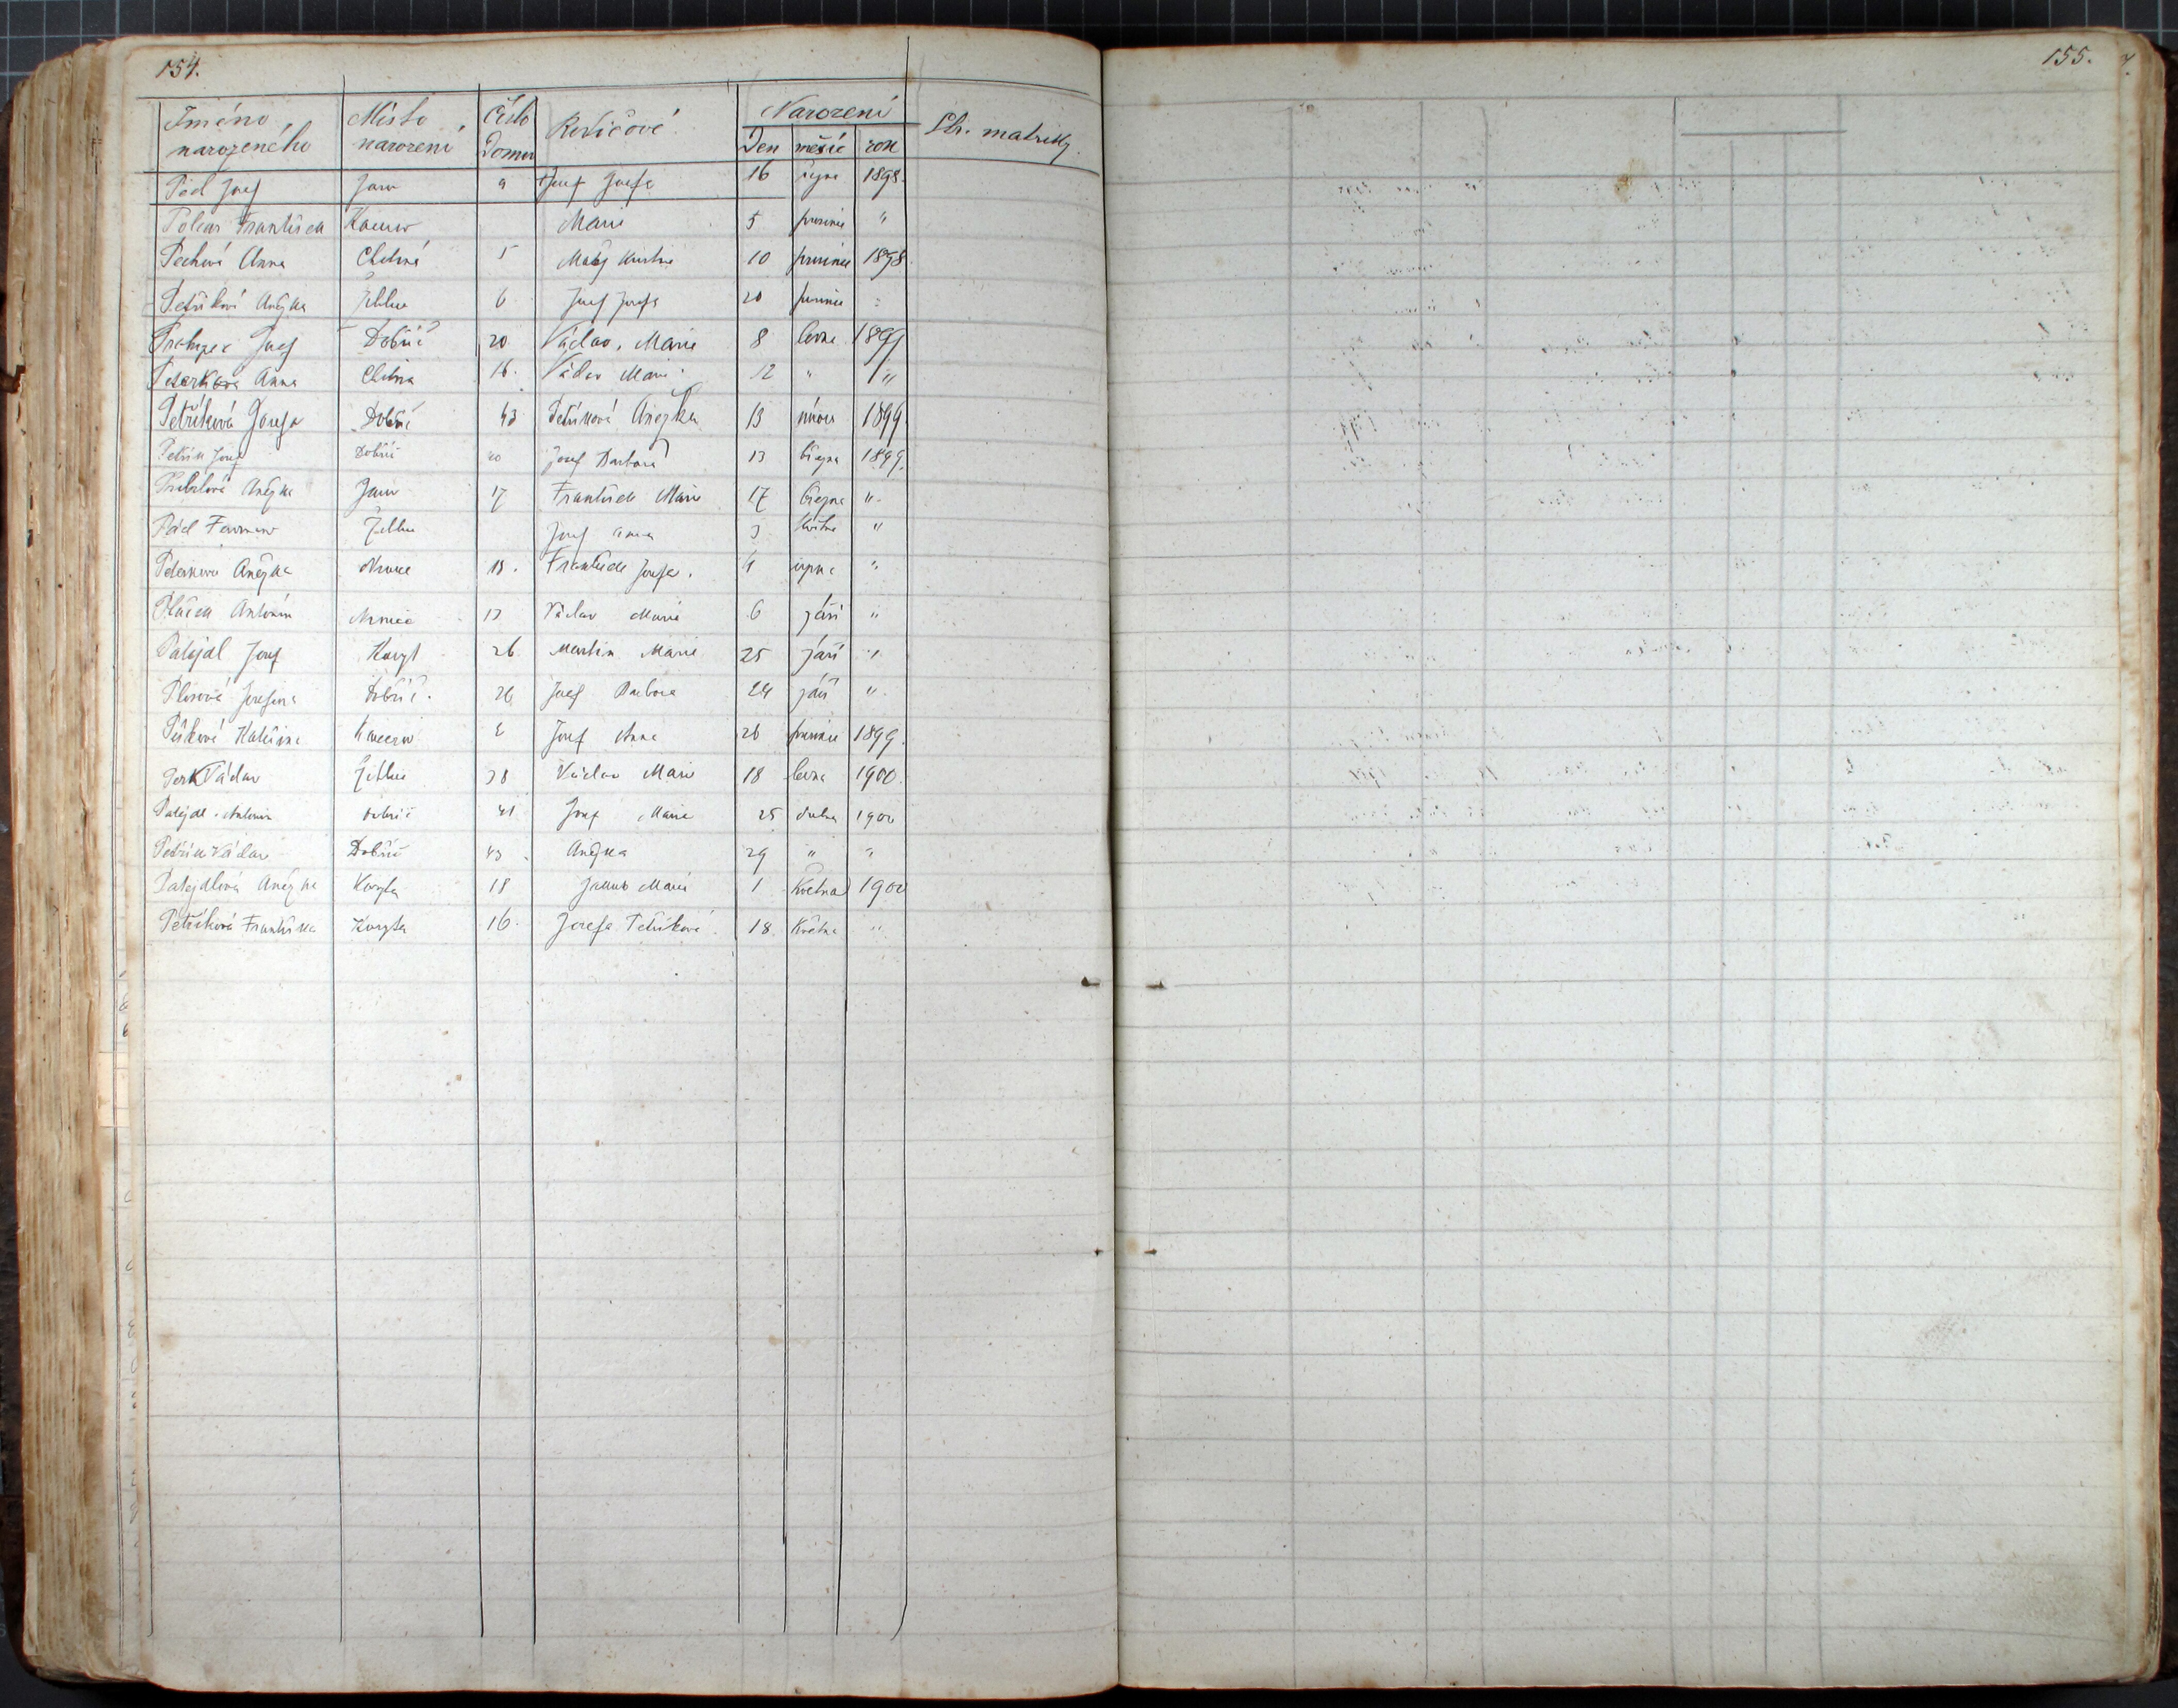 154.
155.
Jméno narozeného Místo narození Číslo Domu Rodičové Narození Den měsíc rok Str. matriky
Pád Josef Jarov 9 Josef Josefa 16 října 1898.
Polcar František Kacerov Marie 5 prosince "
Pechová Anna Chlumá 5 Matěj 10 prosince 1898.
Petříková Anežka 6 Josef Josefa 20 prosince "
Josef Dobříč 20 Václav, Marie 8 ledna 1899
Peterková Anna Chlumá 16. Václav Marie 12 " "
Petříková Josefa Dobříč 43 Petříková Anežka 13 února 1899
Petřík Josef Dobříč 20 Josef Barbora 13 března 1899.
Anežka Jarov 17 František Marie 17 března "
Pád 3 května "
Peterková Anežka 18. František Josefa. 4 srpna "
Antonín 13 Václav Marie 6 září "
Palejdl Josef Koryt 26 Martin Marie 25 září "
Josefina Dobříč. 26 Josef Barbora 24 září "
Kateřina Kacerov 2 Josef Anna 26 prosince 1899.
Perk Václav 38 Václav Marie 18 ledna 1900.
Palejdl Antonín Dobříč 41 Josef Marie 25 dubna 1900
Petřík Václav Dobříč 43 Anežka 29 " "
Palejdlová Anežka Koryta 18 Jakub Marie 1 Května 1900
Petříková Františka Koryta 16. Josefa Petříková. 18 Května "